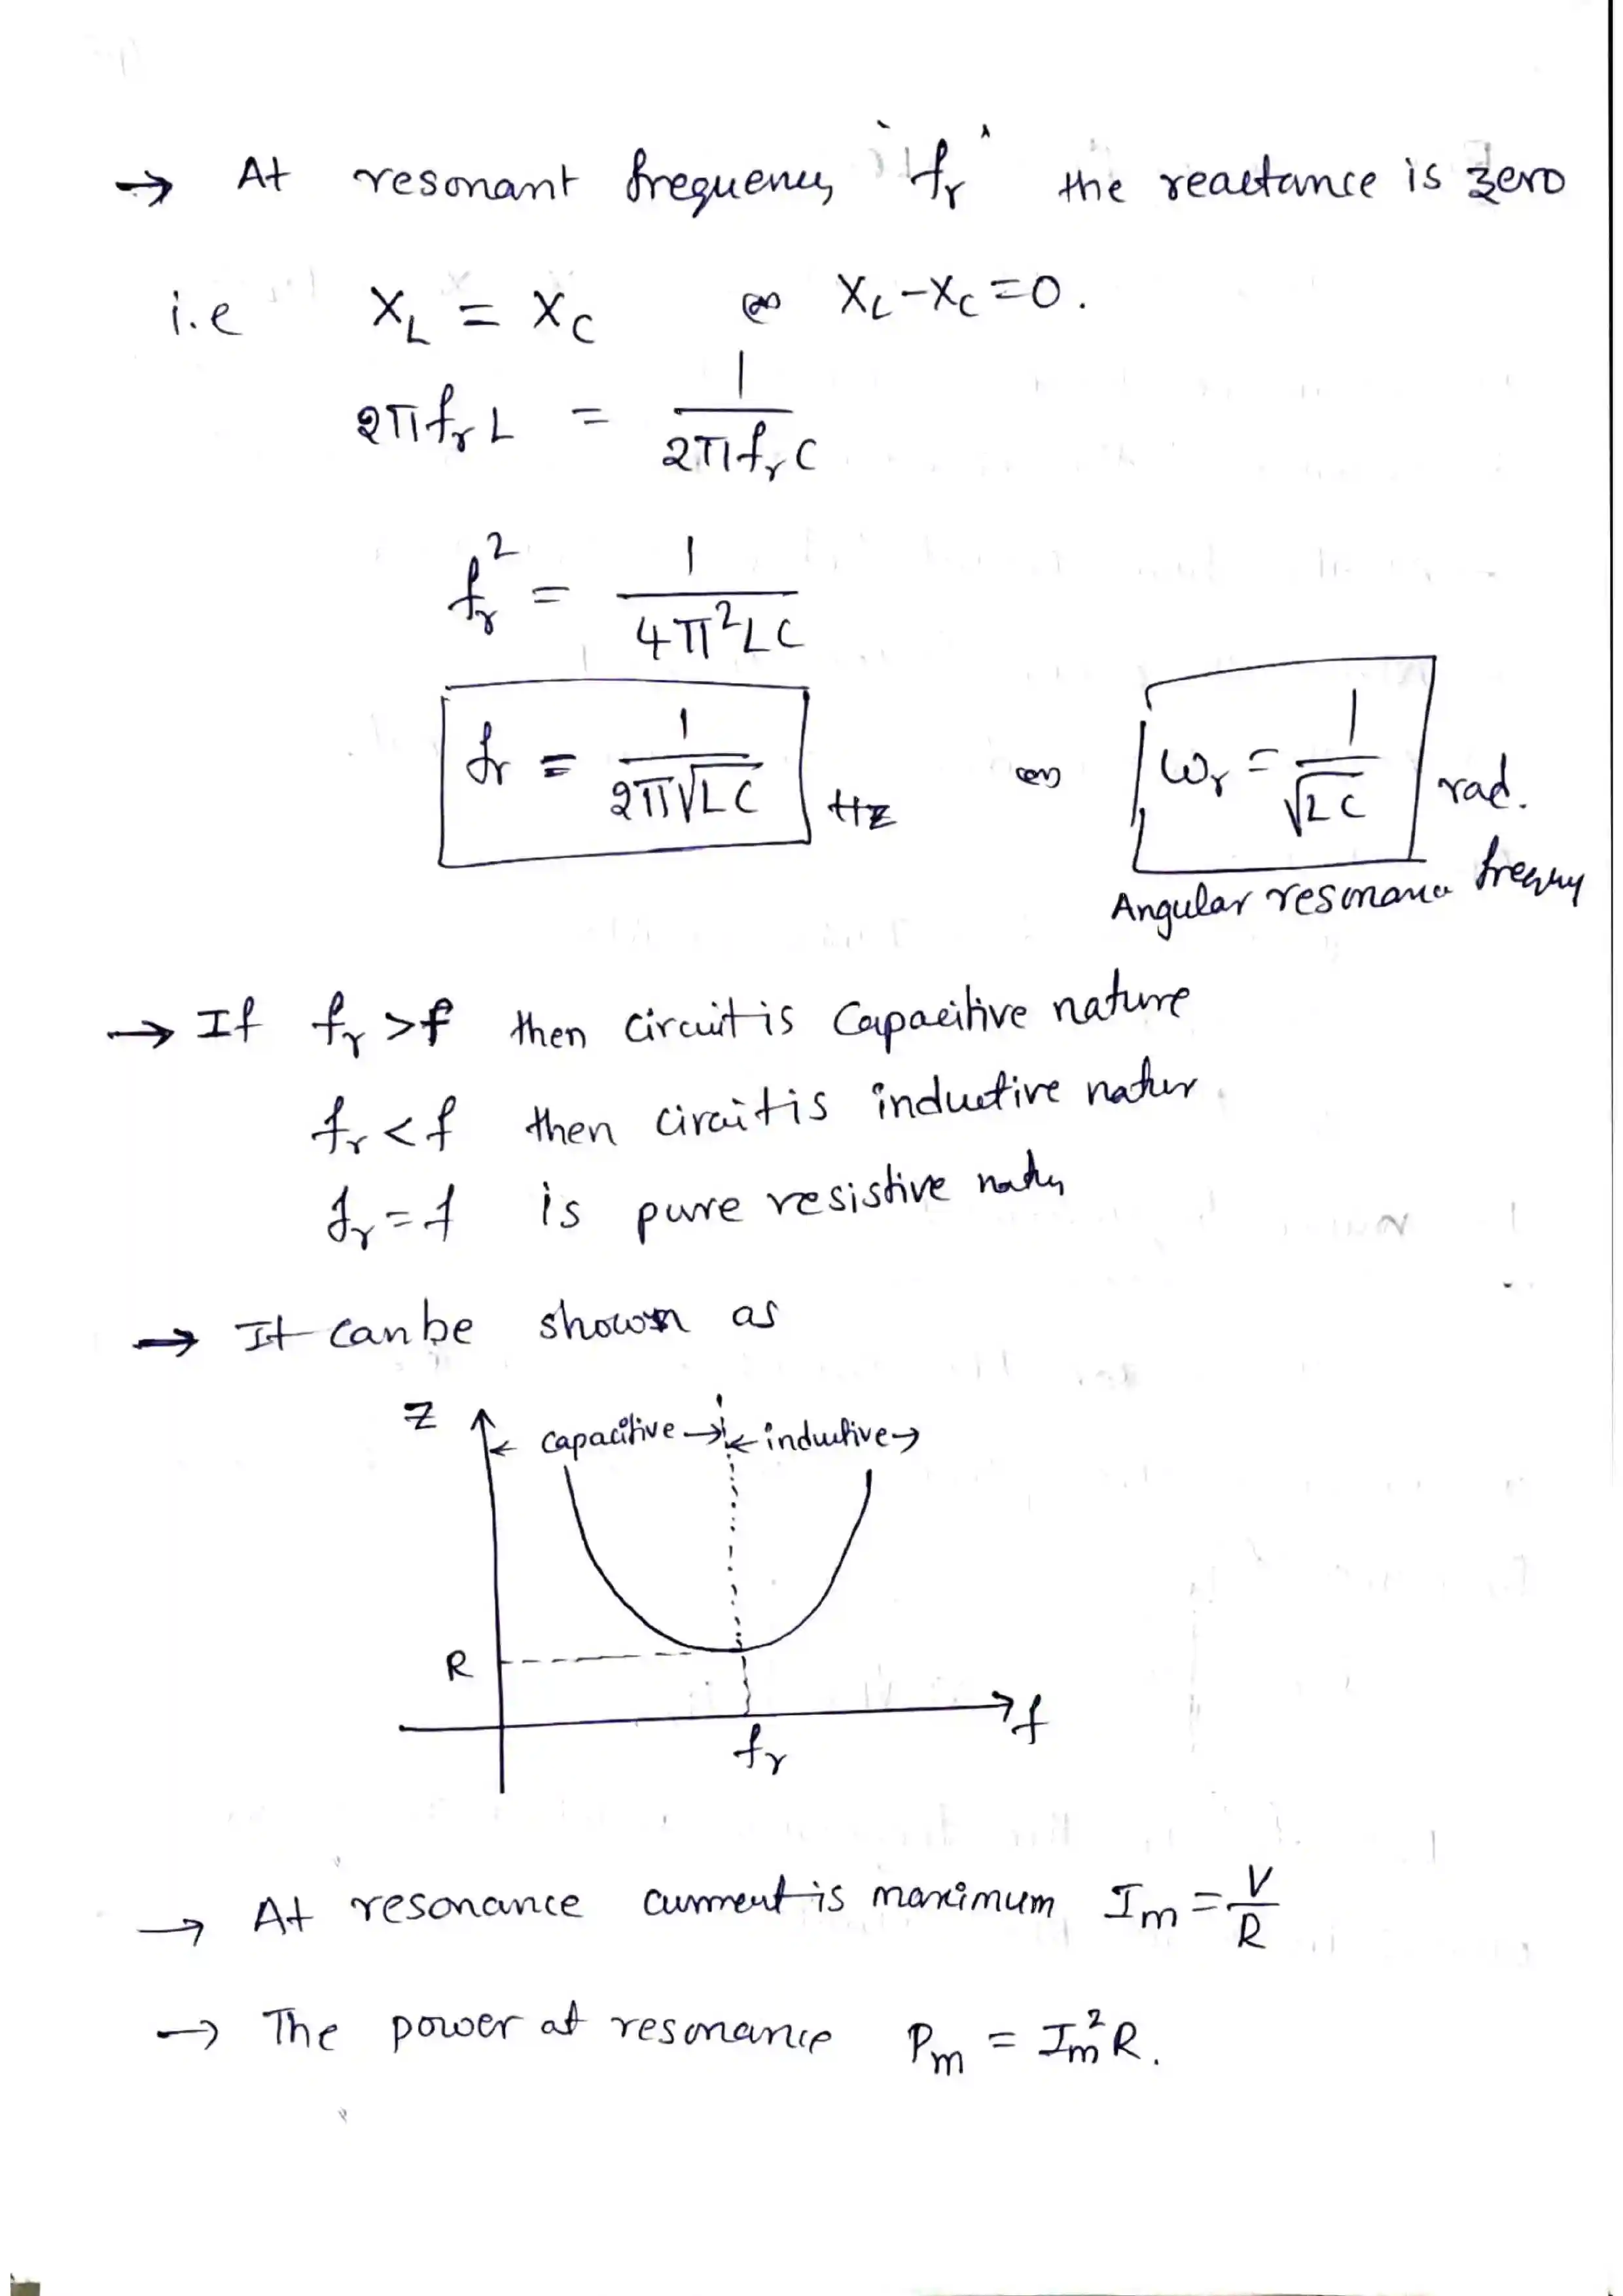 → At resonant frequency 'fr' the reactance is zero
i.e XL = XC (or) XL-XC=0.
2πfrL = 1/2πfrC
fr² = 1/4π²LC
fr = 1/2π√LC Hz (or) ωr = 1/√LC rad.
Angular resonance frequency
→ If fr >f then circuit is Capacitive nature
fr < f then circuit is inductive natur
fr = f is pure resistive
→ It can be shown as
Z ← capacitive → ← inductive →
R
f
fr
→ At resonance current is maximum Im = V/R
→ The power at resonance Pm = Im²R.